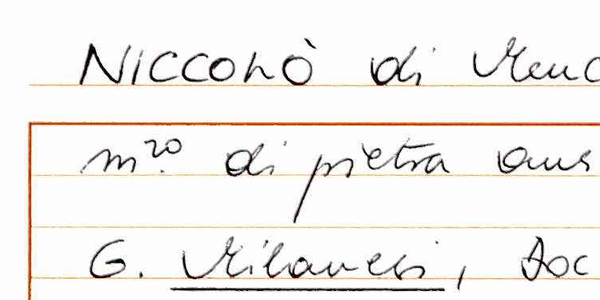 Niccolò di Meuc
m.ro di pietra
G. Milanesi, Doc